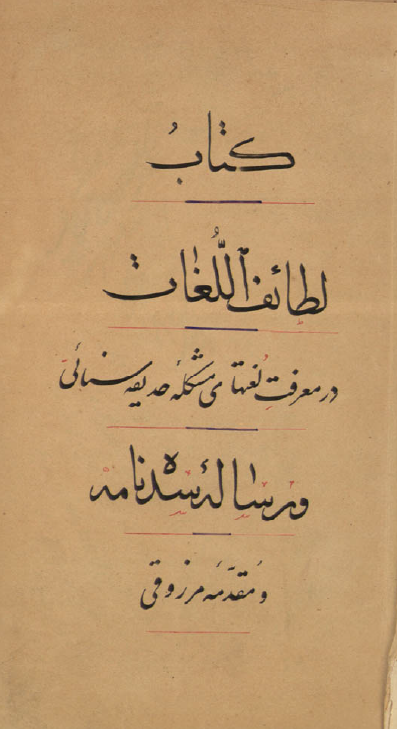 كتابُ
لطائف اللُّغات
در معرفتِ لُغتهای مشکلهٔ حدیقه سنائیّ
و رسالهٔ سده نامه
و مُقدّمه مرزوقی